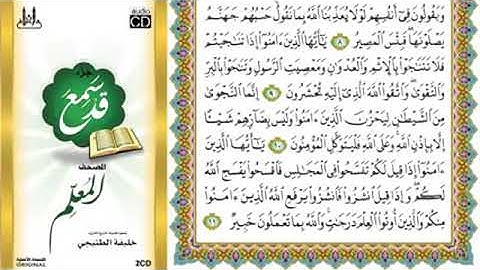 audio
CD
جزء
قد سمع
المصحف
المعلم
خليفة الطنيجي
ORIGINAL
2CD
وَيَقُولُونَ فِي أَنفُسِهِمْ لَوْلَا يُعَذِّبُنَا اللَّهُ بِمَا نَقُولُ حَسْبُهُمْ جَهَنَّمُ
يَصْلَوْنَهَا فَبِئْسَ الْمَصِيرُ ٨ يَا أَيُّهَا الَّذِينَ ءَامَنُوا إِذَا تَنَاجَيْتُمْ
فَلَا تَتَنَاجَوْا بِالْإِثْمِ وَالْعُدْوَانِ وَمَعْصِيَتِ الرَّسُولِ وَتَنَاجَوْا بِالْبِرِّ
وَالتَّقْوَى وَاتَّقُوا اللَّهَ الَّذِي إِلَيْهِ تُحْشَرُونَ ٩ إِنَّمَا النَّجْوَى
مِنَ الشَّيْطَانِ لِيَحْزُنَ الَّذِينَ ءَامَنُوا وَلَيْسَ بِضَارِّهِمْ شَيْئًا
إِلَّا بِإِذْنِ اللَّهِ وَعَلَى اللَّهِ فَلْيَتَوَكَّلِ الْمُؤْمِنُونَ ١٠ يَا أَيُّهَا الَّذِينَ
ءَامَنُوا إِذَا قِيلَ لَكُمْ تَفَسَّحُوا فِي الْمَجَالِسِ فَافْسَحُوا يَفْسَحِ اللَّهُ
لَكُمْ وَإِذَا قِيلَ انشُزُوا فَانشُزُوا يَرْفَعِ اللَّهُ الَّذِينَ ءَامَنُوا
مِنكُمْ وَالَّذِينَ أُوتُوا الْعِلْمَ دَرَجَاتٍ وَاللَّهُ بِمَا تَعْمَلُونَ خَبِيرٌ ١١